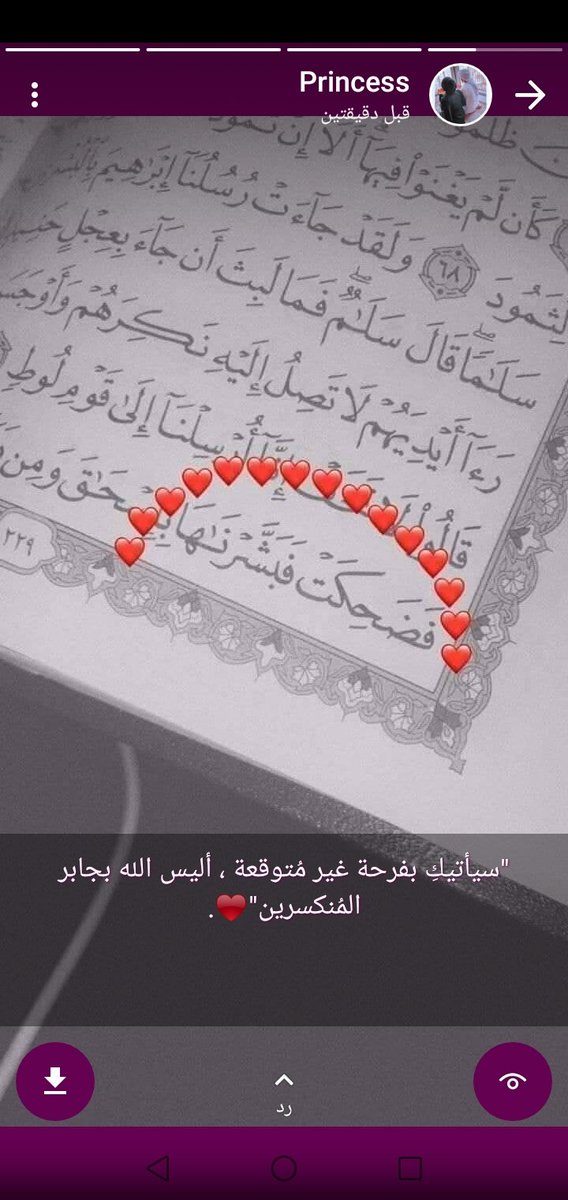 Princess
قبل دقيقتين
كَأَن لَّمْ يَغْنَوْا فِيهَا أَلَا إِنَّ ثَمُودَ
لِثَمُودَ ٦٨ وَلَقَدْ جَاءَتْ رُسُلُنَا إِبْرَاهِيمَ
سَلَامًا قَالَ سَلَامٌ فَمَا لَبِثَ أَن جَاءَ بِعِجْلٍ
رَءَا أَيْدِيَهُمْ لَا تَصِلُ إِلَيْهِ نَكِرَهُمْ وَأَوْجَسَ
قَالُوا إِنَّا أُرْسِلْنَا إِلَىٰ قَوْمِ لُوطٍ
فَضَحِكَتْ فَبَشَّرْنَاهَا بِإِسْحَاقَ وَمِن
٢٢٩
"سيأتيكِ بفرحة غير مُتوقعة ، أليس الله بجابر
المُنكسرين"❤️.
رد